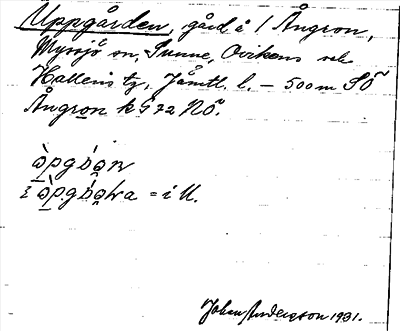 Uppgården, gård å / Ångron,
Myssjö sn, Sunne, Ovikens och
Hallens tg, Jämtl. l. – 500 m SÖ
Ångron k G 72 NÖ.
i = i U.
Johan Andersson 1931.